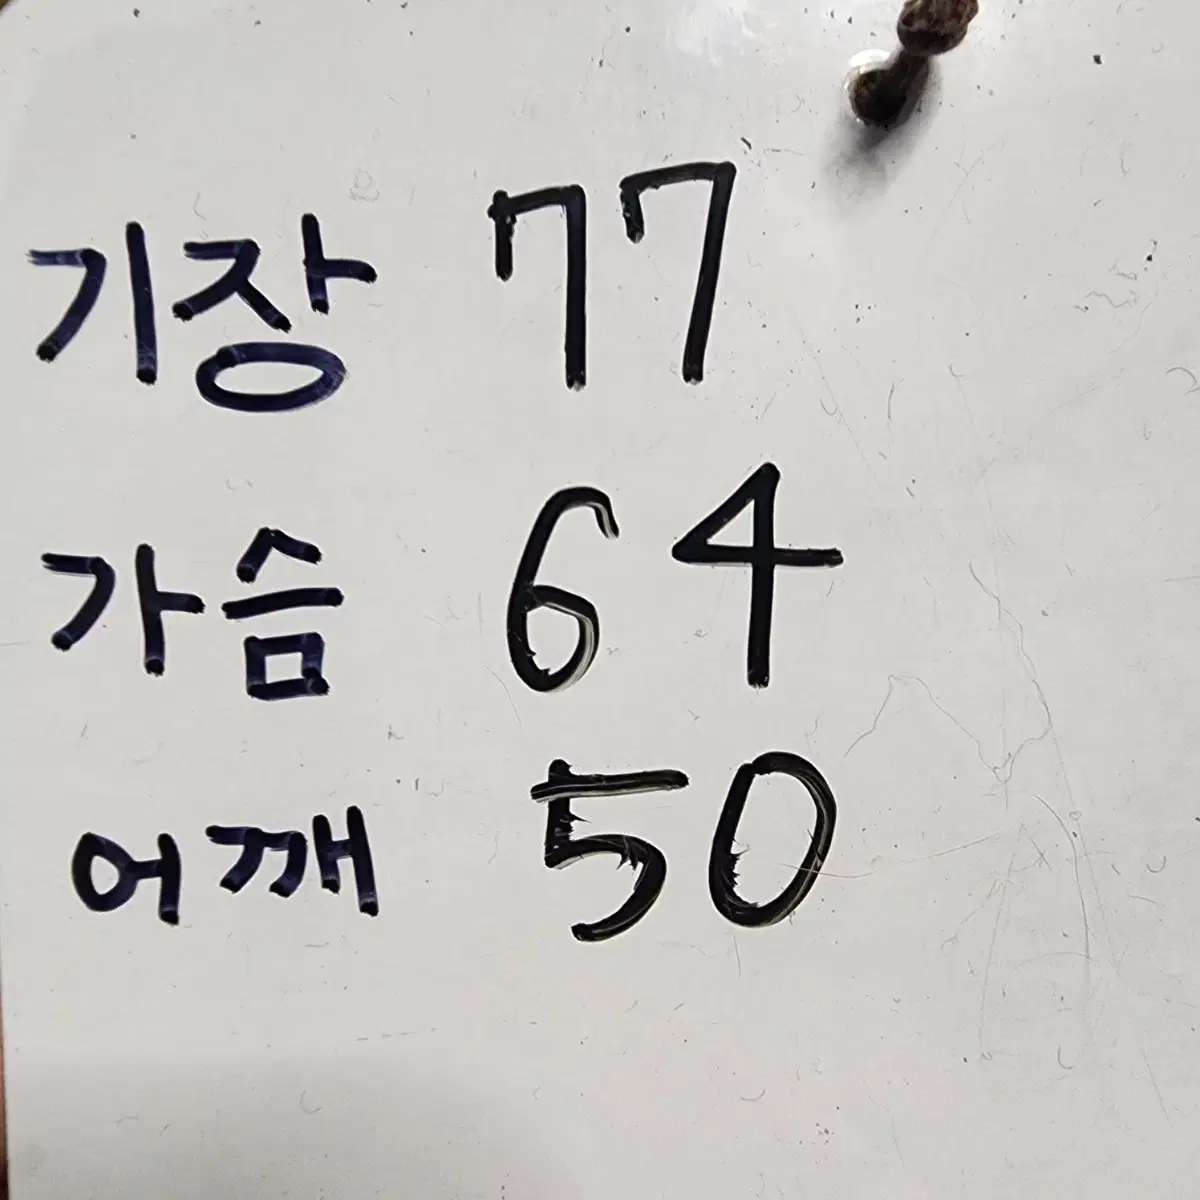 기장 77
가슴 64
어깨 50